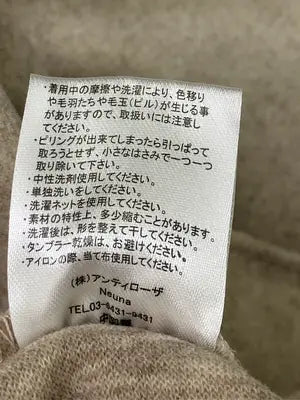 ・着用中の摩擦や洗濯により、色移り
や毛羽たちや毛玉(ピル)が生じる事
がありますので、取扱いには注意し
てください。
・ピリングが出来てしまったら引っぱって
取ろうとせず、小さなはさみで一つ一つ
取り除いて下さい。
・中性洗剤使用してください。
・単独洗いをしてください。
・洗濯ネットを使用してください。
・素材の特性上、多少縮むことがあります。
・洗濯後は、形を整えて干してください。
・タンブラー乾燥は、お避けください。
・アイロンの際、当て布使用してください。
(株)アンティローザ
Neuna
TEL.03-6431-9431